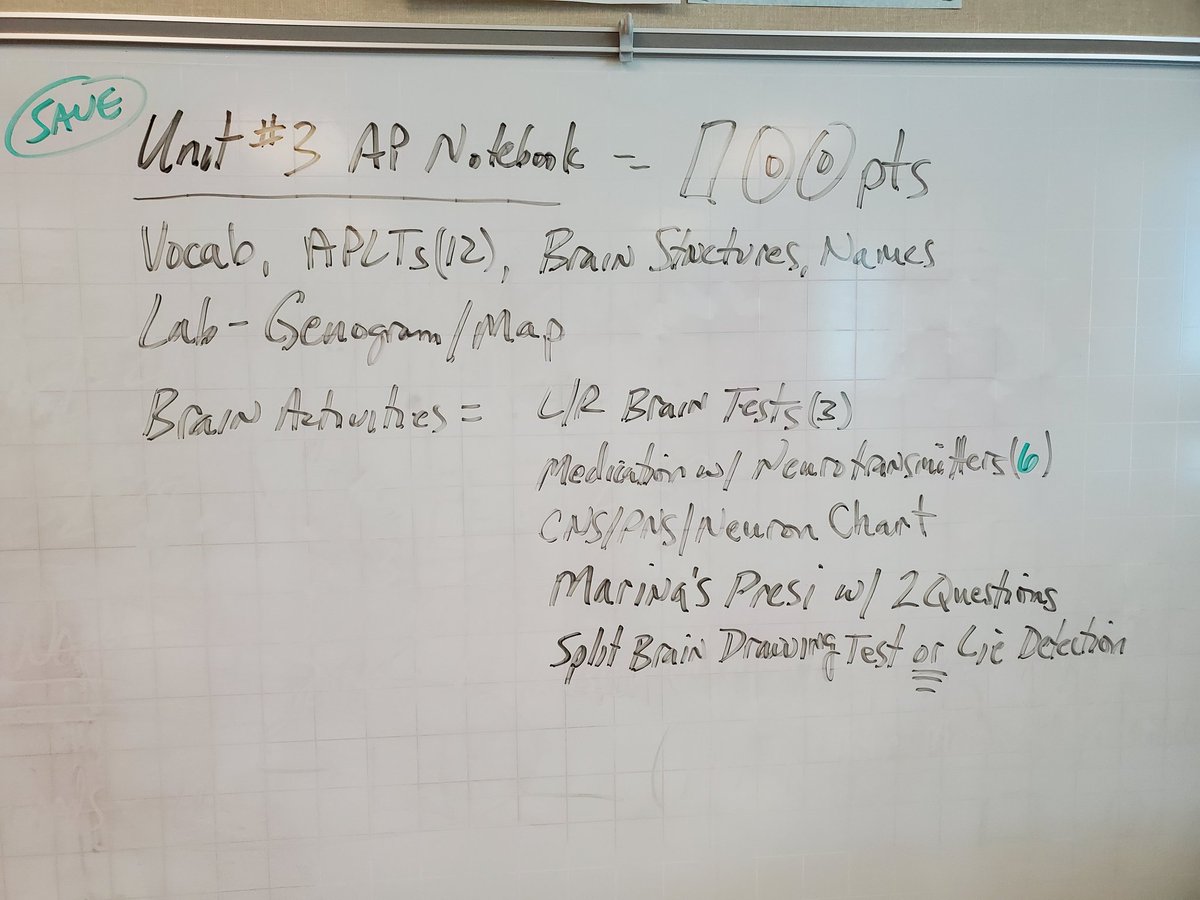 SAVE
Unit #3 AP Notebook = 100pts
Vocab, APLTs(12), Brain Structures, Names
Lab - Genogram/Map
Brain Activities = L/R Brain Tests(3)
Medication w/ Neurotransmitters(6)
CNS/PNS/Neuron Chart
Marina's Presi w/ 2 Questions
Split Brain Drawing Test or Lie Detection